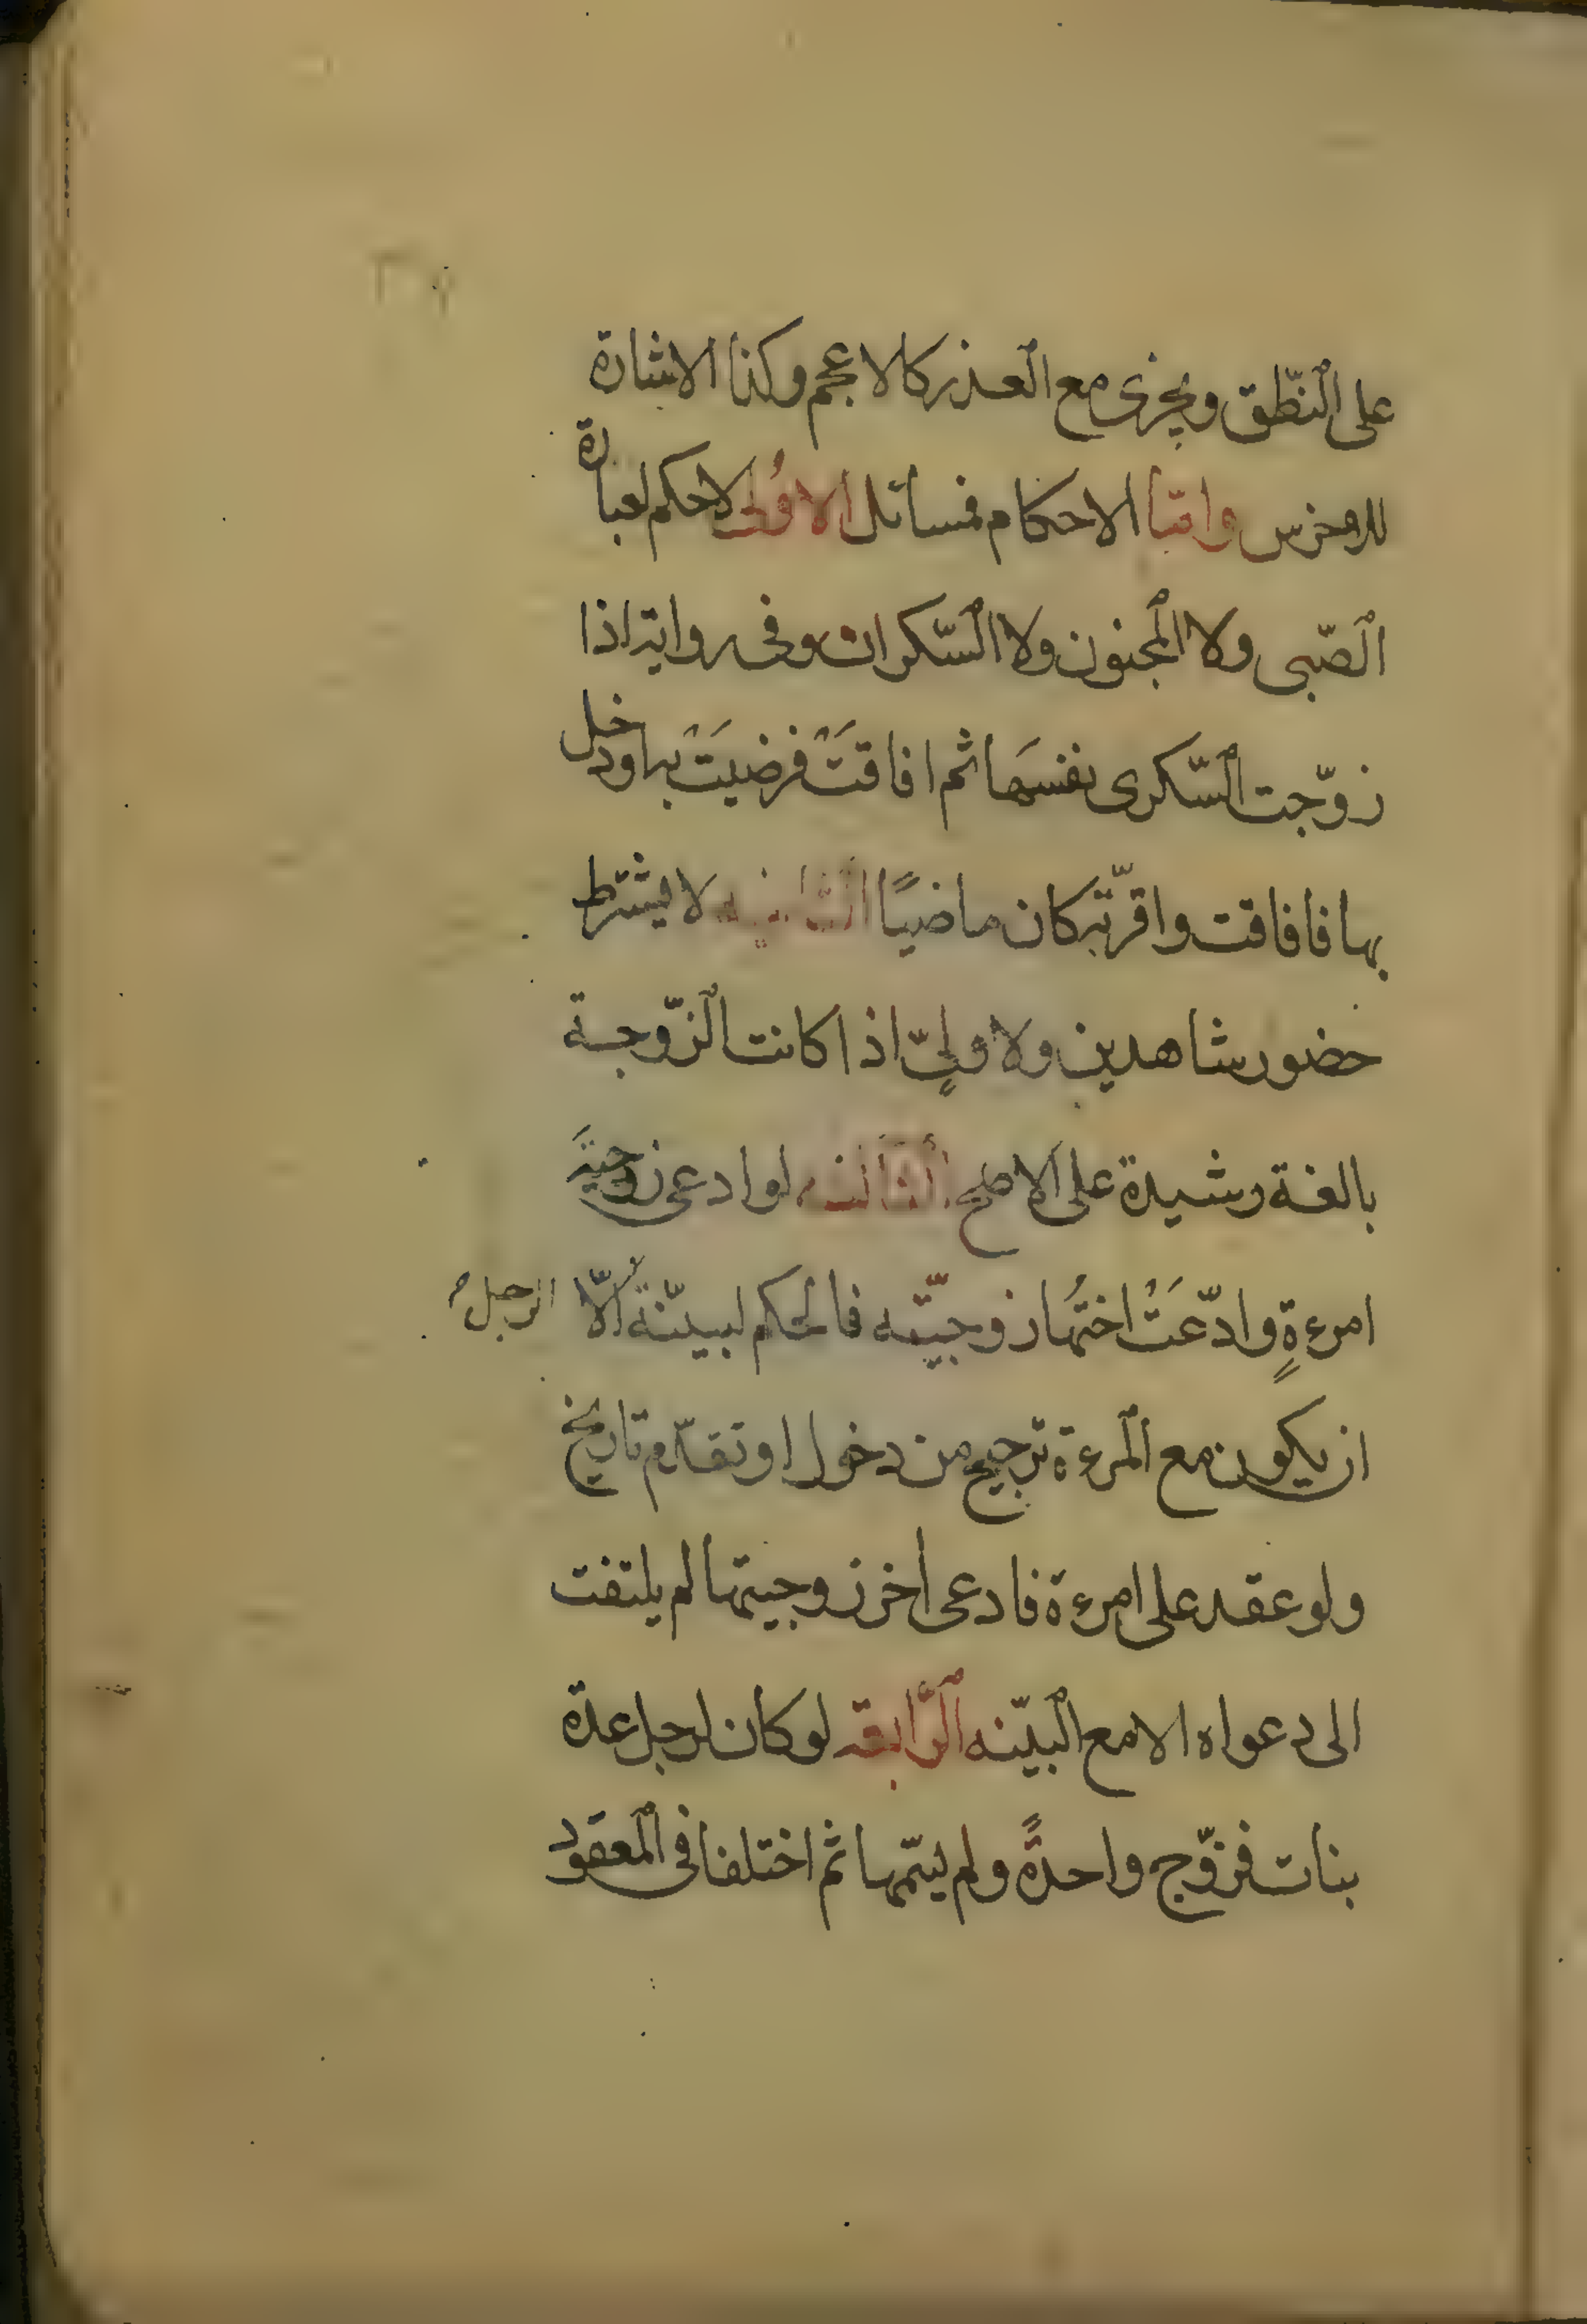 على النّطق ويجزى مع العذر كالاعجم وكذا الاشارة
للاخرس وامّا الاحكام فمسائل الاوُلى لاحكم لعبارة
الصّبى ولا المجنون ولا السّكران وفى رواية اذا
زوّجت السّكرى نفسَها ثم افاقتَْ فرضيَتَْ به اودخل
بها فافاقت واقرّته كان ماضيًا الثانيه لا يشترط
حضور شاهدين ولا ولىٍّ اذا كانت الزّوجة
بالغة رشيدة على الاصح الثالثه لو ادعى زوجيّة
امرءةٍ وادّعَتْ اختُها زوجيّته فالحكم لبيّنة الّا الرجل
ان يكون مع المرءة ترجيح من دخول او تقدّم تاريخ
ولو عقد على امرءة فادعى اخر زوجيتها لم يلتفت
الى دعواه الا مع البيّنه الرّابعة لو كان لرجل عدة
بنات فزوّج واحدةً ولم يسّمها ثم اختلفا فى المعقود